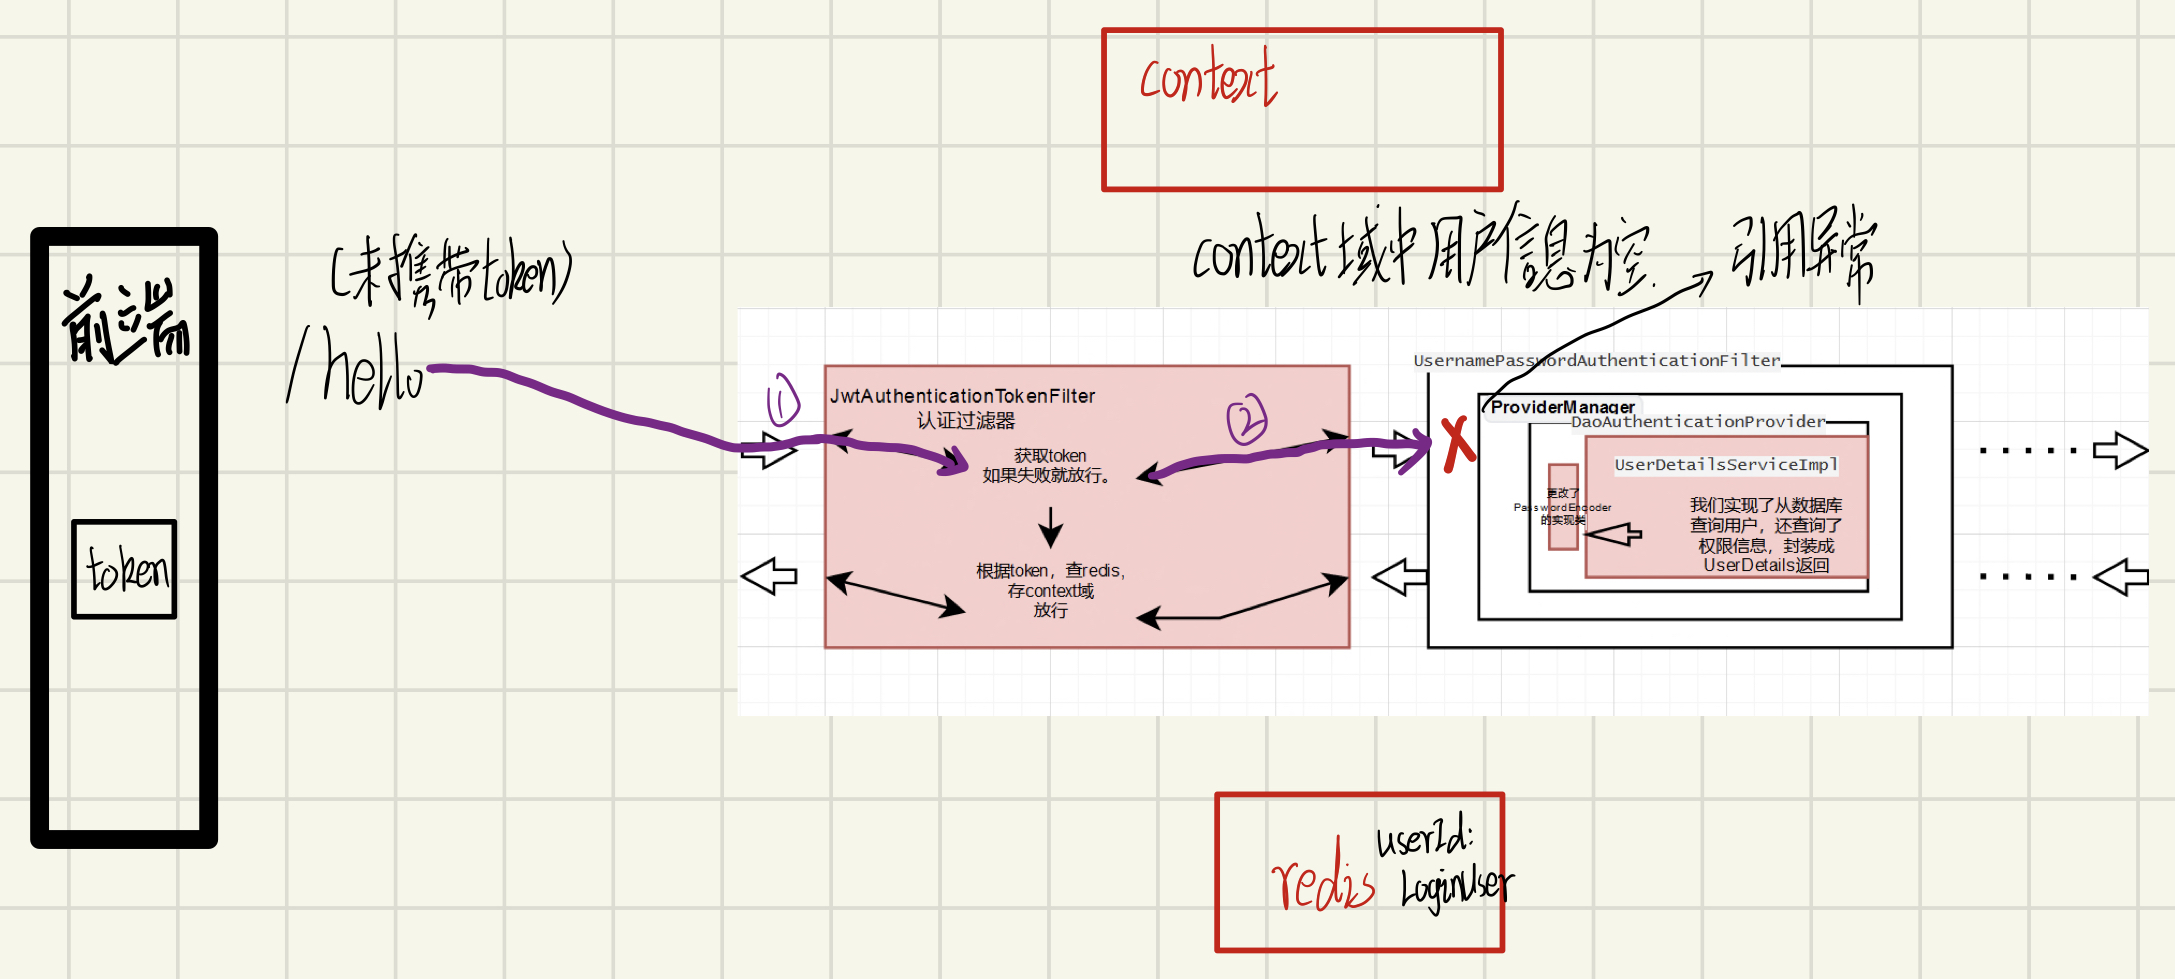 context
(未携带token)
/hello
前端
token
context域中用户信息为空
引用异常
①
②
JwtAuthenticationTokenFilter
认证过滤器
获取token
如果失败就放行。
根据token，查redis,
存context域
放行
UsernamePasswordAuthenticationFilter
ProviderManager
DaoAuthenticationProvider
UserDetailsServiceImpl
更改了
PasswordEncoder
的实现类
我们实现了从数据库
查询用户，还查询了
权限信息，封装成
UserDetails返回
redis
userId:
LoginUser